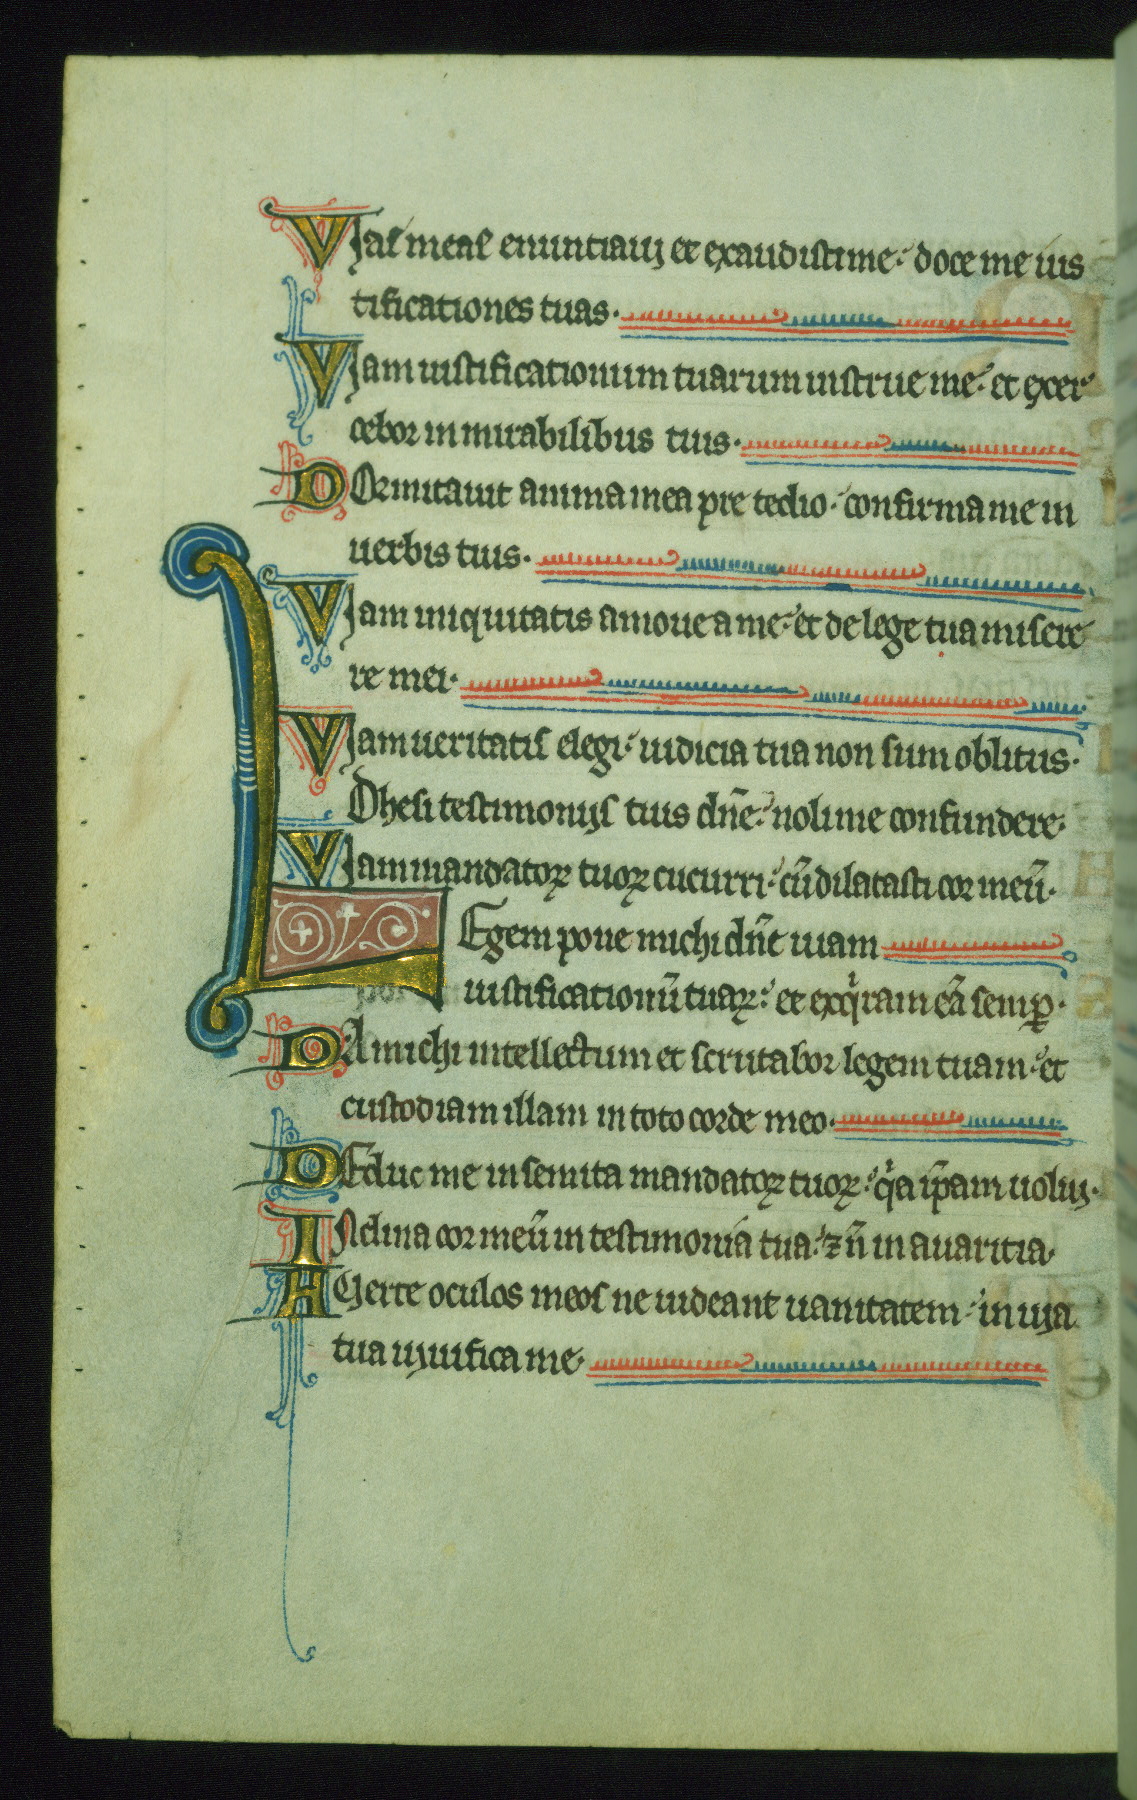 Vias meas enuntiauij et exaudisti me. doce me ius
tificationes tuas.
Viam iustificationum tuarum instrue me. et exer
cebor in mirabilibus tuis.
DOrmitauit anima mea pre tedio. confirma me in
uerbis tuis.
Viam iniquitatis amoue a me. et de lege tua misere
re mei.
Viam ueritatis elegi. iudicia tua non sum oblitus.
Dhesi testimonijs tuis dn̄e. noli me confundere.
Viam mandatoꝝ tuoꝝ cucurri. cū dilatasti cor meū.
LEgem pone michi dn̄e uiam
iustificationū tuaꝝ. et exqͥram eā semꝑ.
DA michi intellectum et scrutabor legem tuam. et
custodiam illam in toto corde meo.
DEduc me in semita mandatoꝝ tuoꝝ. qͥa ip̄am uoluj.
INclina cor meū in testimonia tua. ⁊ n̄ in auaritia.
AUerte oculos meos ne uideant uanitatem. in uia
tua uiuifica me.